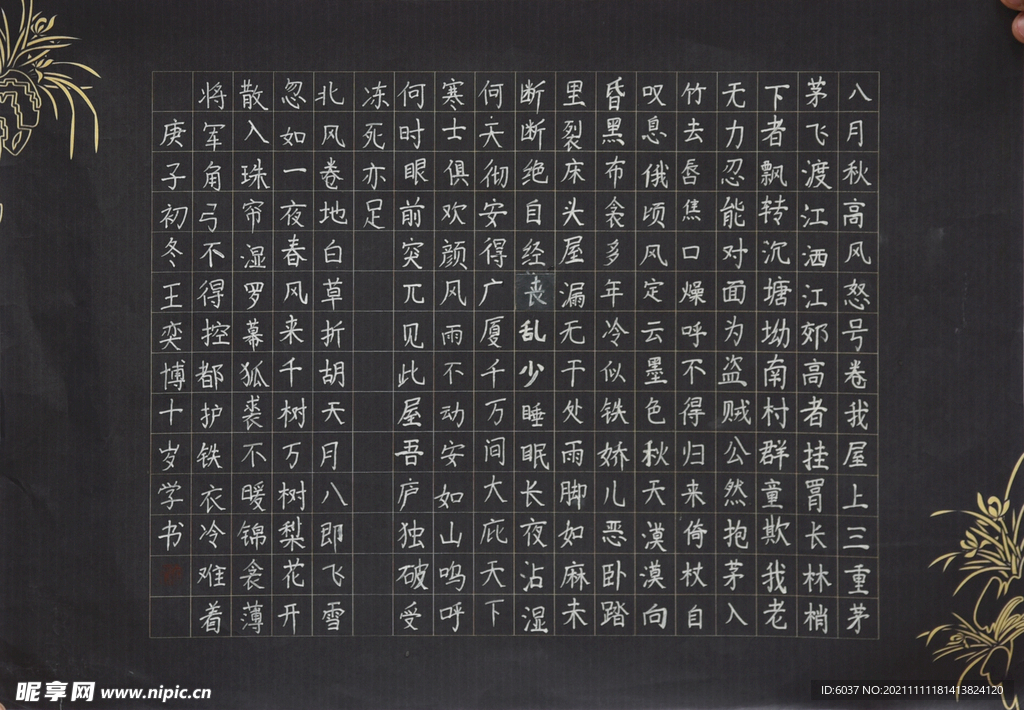 八月秋高风怒号卷我屋上三重茅
茅飞渡江洒江郊高者挂罥长林梢
下者飘转沉塘坳南村群童欺我老
无力忍能对面为盗贼公然抱茅入
竹去唇焦口燥呼不得归来倚杖自
叹息俄顷风定云墨色秋天漠漠向
昏黑布衾多年冷似铁娇儿恶卧踏
里裂床头屋漏无干处雨脚如麻未
断断绝自经丧乱少睡眠长夜沾湿
何天彻安得广厦千万间大庇天下
寒士俱欢颜风雨不动安如山呜呼
何时眼前突兀见此屋吾庐独破受
冻死亦足
北风卷地白草折胡天月八即飞雪
忽如一夜春风来千树万树梨花开
散入珠帘湿罗幕狐裘不暖锦衾薄
将军角弓不得控都护铁衣冷难着
庚子初冬王奕博十岁学书
昵享网 www.nipic.cn
ID:6037 NO:20211111181413824120